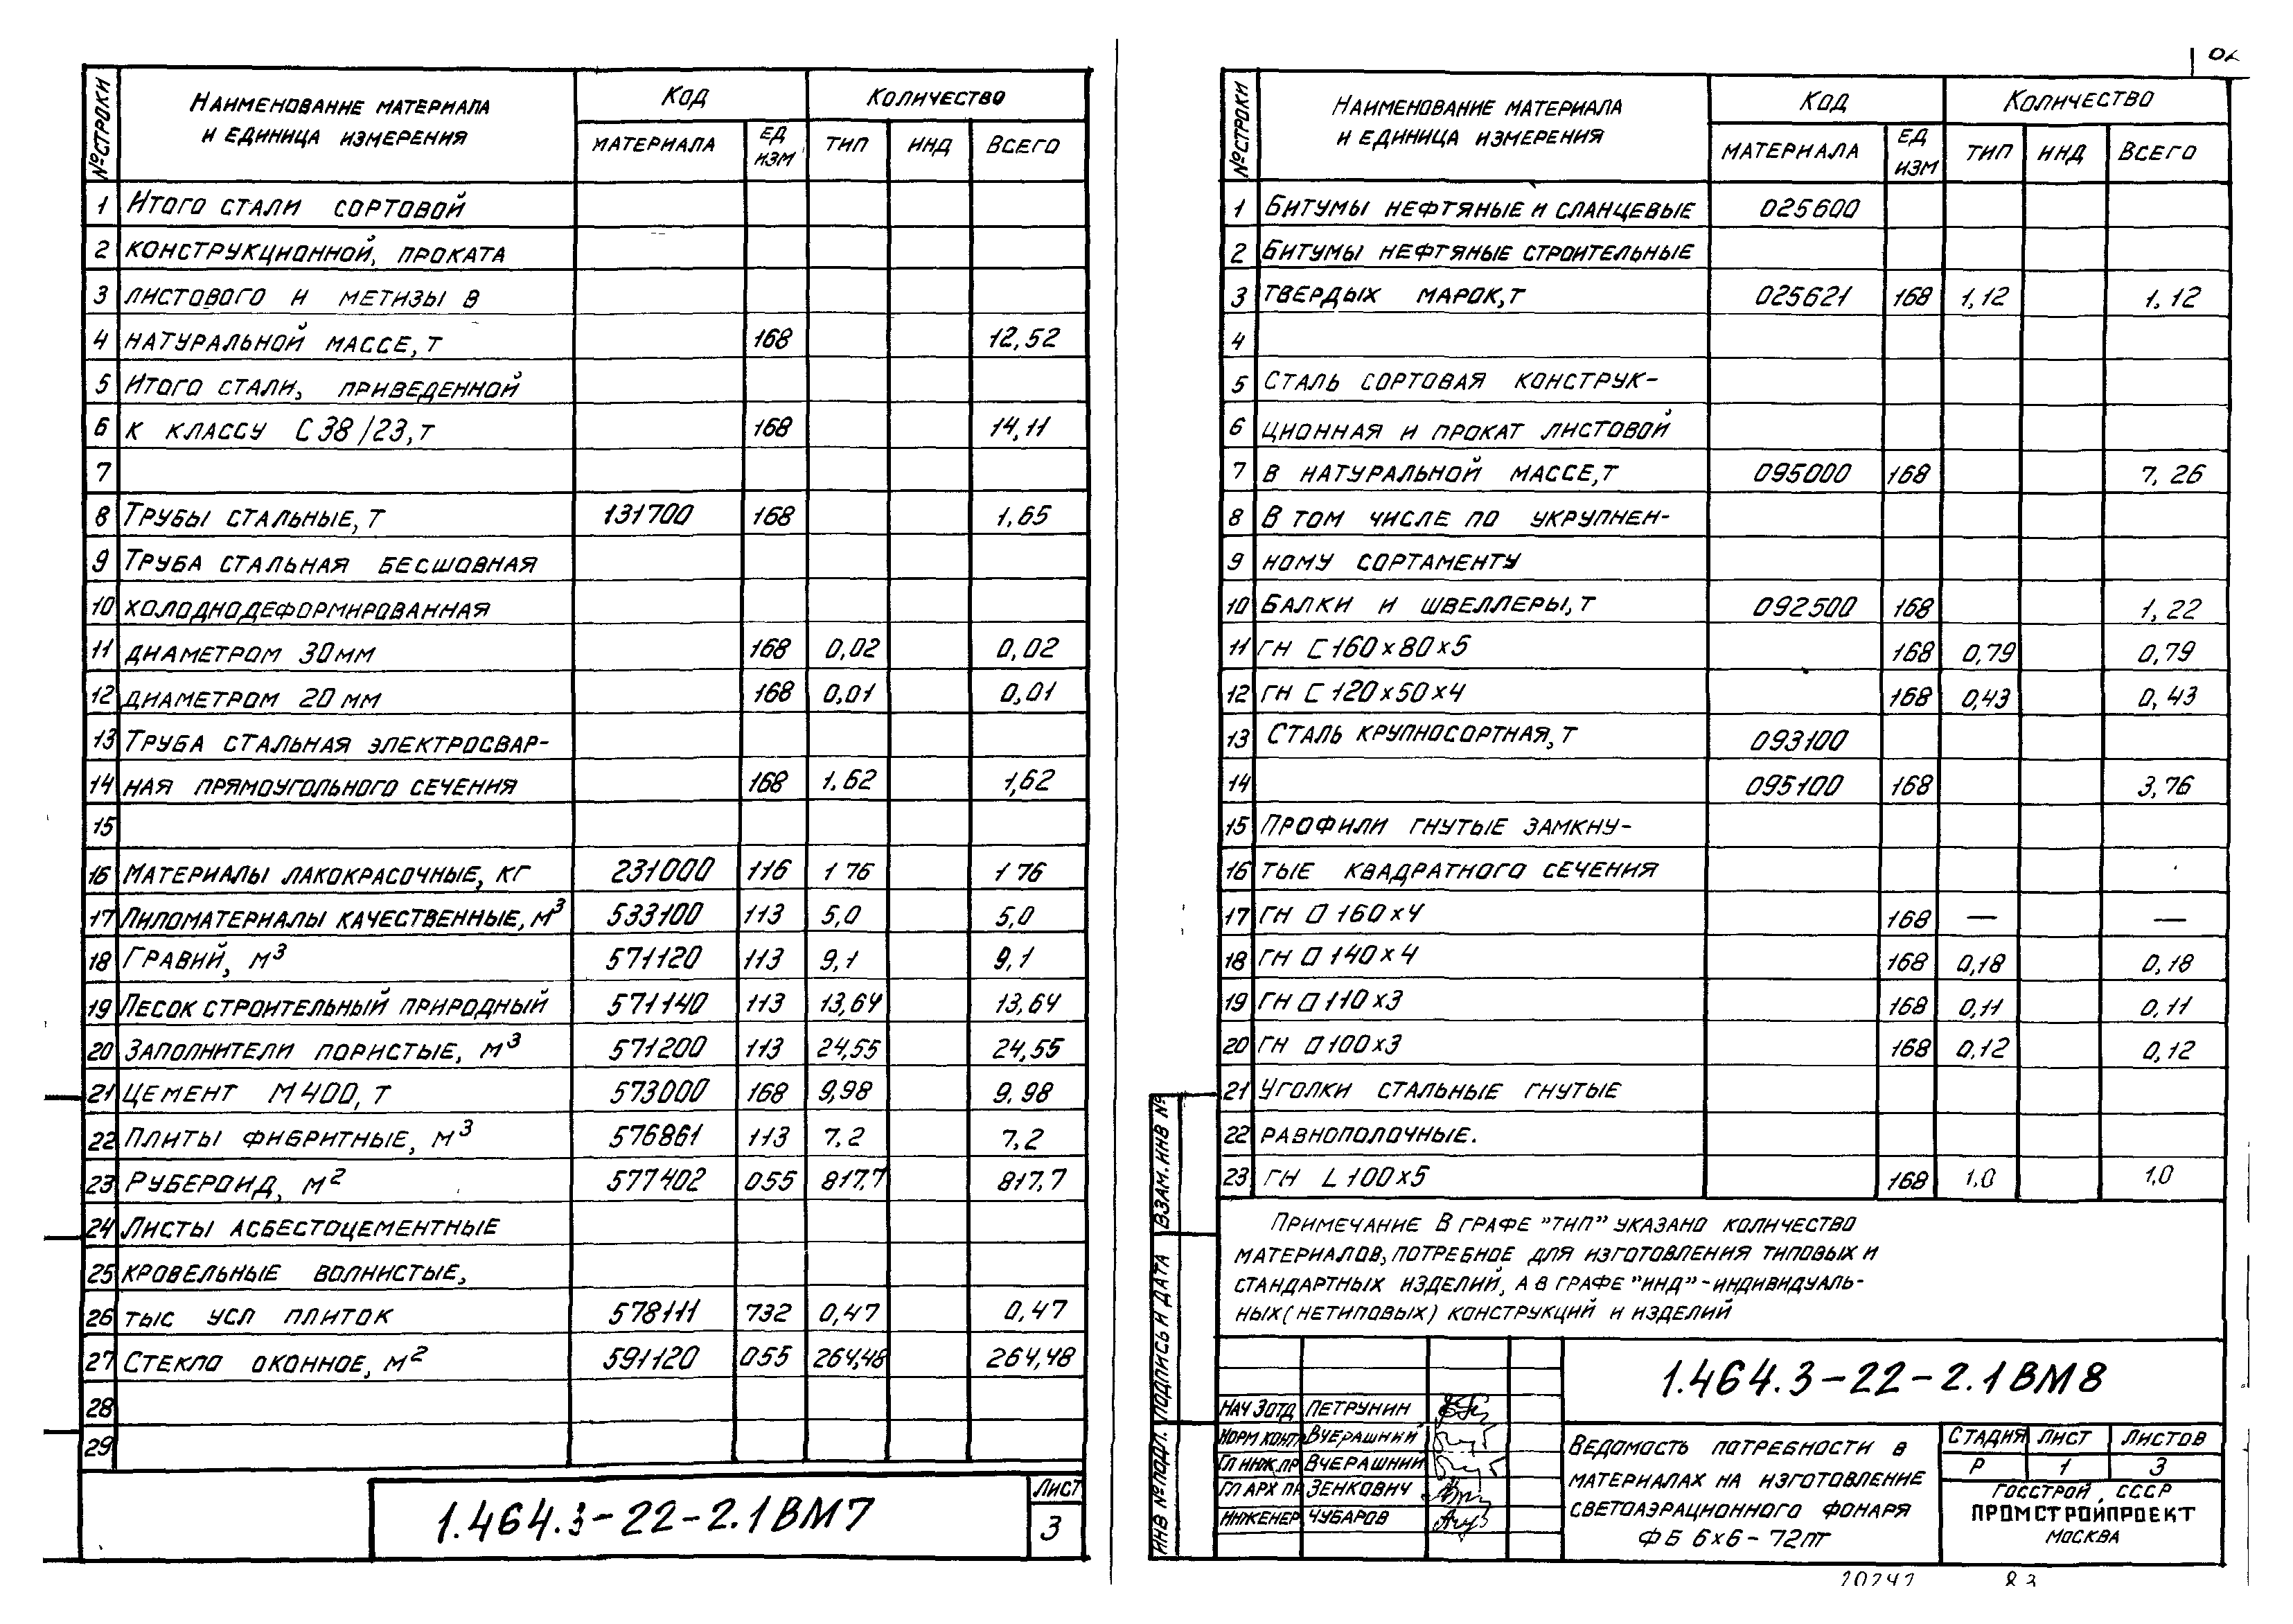 № СТРОКИ | НАИМЕНОВАНИЕ МАТЕРИАЛА И ЕДИНИЦА ИЗМЕРЕНИЯ | КОД | КОЛИЧЕСТВО
МАТЕРИАЛА | ЕД ИЗМ | ТИП | ИНД | ВСЕГО
1 ИТОГО СТАЛИ СОРТОВОЙ
2 КОНСТРУКЦИОННОЙ, ПРОКАТА
3 ЛИСТОВОГО И МЕТИЗЫ В
4 НАТУРАЛЬНОЙ МАССЕ, Т 168 12,52
5 ИТОГО СТАЛИ, ПРИВЕДЕННОЙ
6 К КЛАССУ С 38/23, Т 168 14,11
7
8 ТРУБЫ СТАЛЬНЫЕ, Т 131700 168 1,65
9 ТРУБА СТАЛЬНАЯ БЕСШОВНАЯ
10 ХОЛОДНОДЕФОРМИРОВАННАЯ
11 ДИАМЕТРОМ 30 ММ 168 0,02 0,02
12 ДИАМЕТРОМ 20 ММ 168 0,01 0,01
13 ТРУБА СТАЛЬНАЯ ЭЛЕКТРОСВАР-
14 НАЯ ПРЯМОУГОЛЬНОГО СЕЧЕНИЯ 168 1.62 1,62
15
16 МАТЕРИАЛЫ ЛАКОКРАСОЧНЫЕ, КГ 231000 116 176 176
17 ПИЛОМАТЕРИАЛЫ КАЧЕСТВЕННЫЕ, М³ 533100 113 5,0 5,0
18 ГРАВИЙ, М³ 571120 113 9,1 9,1
19 ПЕСОК СТРОИТЕЛЬНЫЙ ПРИРОДНЫЙ 571140 113 13,64 13,64
20 ЗАПОЛНИТЕЛИ ПОРИСТЫЕ, М³ 571200 113 24,55 24,55
21 ЦЕМЕНТ М 400, Т 573000 168 9,98 9,98
22 ПЛИТЫ ФИБРИТНЫЕ, М³ 576861 113 7,2 7,2
23 РУБЕРОИД, М² 577402 055 817,7 817,7
24 ЛИСТЫ АСБЕСТОЦЕМЕНТНЫЕ
25 КРОВЕЛЬНЫЕ ВОЛНИСТЫЕ,
26 ТЫС УСЛ ПЛИТОК 578111 732 0,47 0,47
27 СТЕКЛО ОКОННОЕ, М² 591120 055 264,48 264,48
28
29
1.464.3-22-2.1 ВМ7
ЛИСТ
3
№ СТРОКИ | НАИМЕНОВАНИЕ МАТЕРИАЛА И ЕДИНИЦА ИЗМЕРЕНИЯ | КОД | КОЛИЧЕСТВО
МАТЕРИАЛА | ЕД ИЗМ | ТИП | ИНД | ВСЕГО
1 БИТУМЫ НЕФТЯНЫЕ И СЛАНЦЕВЫЕ 025600
2 БИТУМЫ НЕФТЯНЫЕ СТРОИТЕЛЬНЫЕ
3 ТВЕРДЫХ МАРОК, Т 025621 168 1,12 1,12
4
5 СТАЛЬ СОРТОВАЯ КОНСТРУК-
6 ЦИОННАЯ И ПРОКАТ ЛИСТОВОЙ
7 В НАТУРАЛЬНОЙ МАССЕ, Т 095000 168 7,26
8 В ТОМ ЧИСЛЕ ПО УКРУПНЕН-
9 НОМУ СОРТАМЕНТУ
10 БАЛКИ И ШВЕЛЛЕРЫ, Т 092500 168 1,22
11 ГН С 160×80×5 168 0,79 0,79
12 ГН С 120×50×4 168 0,43 0,43
13 СТАЛЬ КРУПНОСОРТНАЯ, Т 093100
14 095100 168 3,76
15 ПРОФИЛИ ГНУТЫЕ ЗАМКНУ-
16 ТЫЕ КВАДРАТНОГО СЕЧЕНИЯ
17 ГН □ 160×4 168 — —
18 ГН □ 140×4 168 0,18 0,18
19 ГН □ 110×3 168 0,11 0,11
20 ГН □ 100×3 168 0,12 0,12
21 УГОЛКИ СТАЛЬНЫЕ ГНУТЫЕ
22 РАВНОПОЛОЧНЫЕ.
23 ГН L 100×5 168 1,0 1,0
ПРИМЕЧАНИЕ В ГРАФЕ "ТИП" УКАЗАНО КОЛИЧЕСТВО
МАТЕРИАЛОВ, ПОТРЕБНОЕ ДЛЯ ИЗГОТОВЛЕНИЯ ТИПОВЫХ И
СТАНДАРТНЫХ ИЗДЕЛИЙ, А В ГРАФЕ "ИНД"-ИНДИВИДУАЛЬ-
НЫХ (НЕТИПОВЫХ) КОНСТРУКЦИЙ И ИЗДЕЛИЙ
ИНВ № ПОДЛ. ПОДПИСЬ И ДАТА ВЗАМ. ИНВ №
НАЧ 3 ОТД ПЕТРУНИН
НОРМ КОНТР ВЧЕРАШНИЙ
ГЛ ИНЖ ПР ВЧЕРАШНИЙ
ГЛ АРХ ПР ЗЕНКОВИЧ
ИНЖЕНЕР ЧУБАРОВ
1.464.3-22-2.1 ВМ8
ВЕДОМОСТЬ ПОТРЕБНОСТИ В
МАТЕРИАЛАХ НА ИЗГОТОВЛЕНИЕ
СВЕТОАЭРАЦИОННОГО ФОНАРЯ
ФБ 6×6-72ПТ
СТАДИЯ ЛИСТ ЛИСТОВ
Р 1 3
ГОССТРОЙ СССР
ПРОМСТРОЙПРОЕКТ
МОСКВА